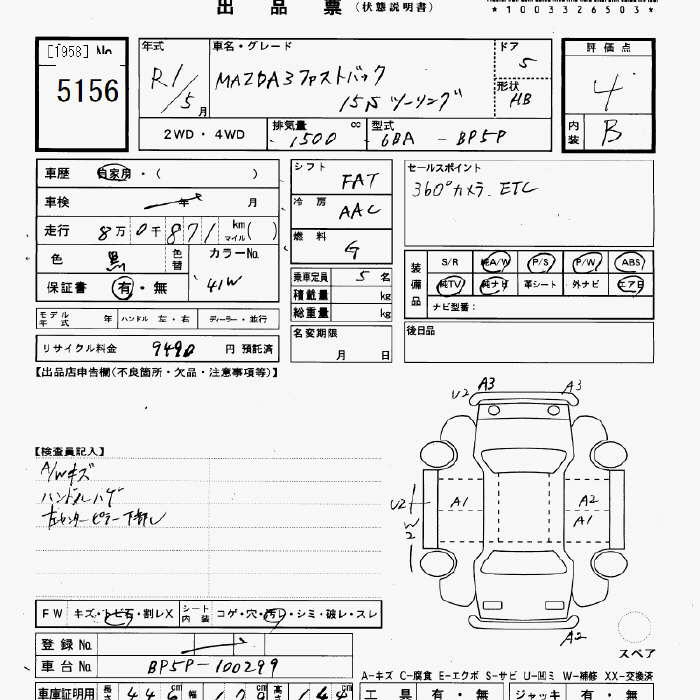 出品票（状態説明書）
*1003326503*
[1958] No 5156
年式 R1/5月
車名・グレード MAZDA3ファストバック
15S ツーリング
ドア 5
形状 HB
評価点 4
内装 B
2WD・4WD
排気量 cc 1500
型式 6BA - BP5P
車歴 自家用・( )
車検 年 月
走行 8万0千871 km マイル( )
色 黒 色替
カラーNo. 41W
保証書 有・無
シフト FAT
冷房 AAC
燃料 G
乗車定員 5名
積載量 kg
総重量 kg
名変期限 月 日
セールスポイント
360°カメラ ETC
装備品
S/R 純A/W P/S P/W ABS
純TV 純ナビ 革シート 外ナビ エアB
ナビ型番：
後日品
モデル年式 年 ハンドル 左・右 ディーラー・並行
リサイクル料金 9490 円 預託済
【出品店申告欄(不良箇所・欠品・注意事項等)】
【検査員記入】
A/Wキズ
ハンドルハゲ
左センターピラー下部U
U2 A3 A3
U2 W2 A1 A2
A1
A2
スペア
FW キズ・トビ石・割レX シート内装 コゲ・穴・汚レ・シミ・破レ・スレ
登録No.
車台No. BP5P-100299
A-キズ C-腐食 E-エクボ S-サビ U-凹ミ W-補修 XX-交換済
車庫証明用 長さ 446 幅 179 高さ 144
工具 有・無 ジャッキ 有・無